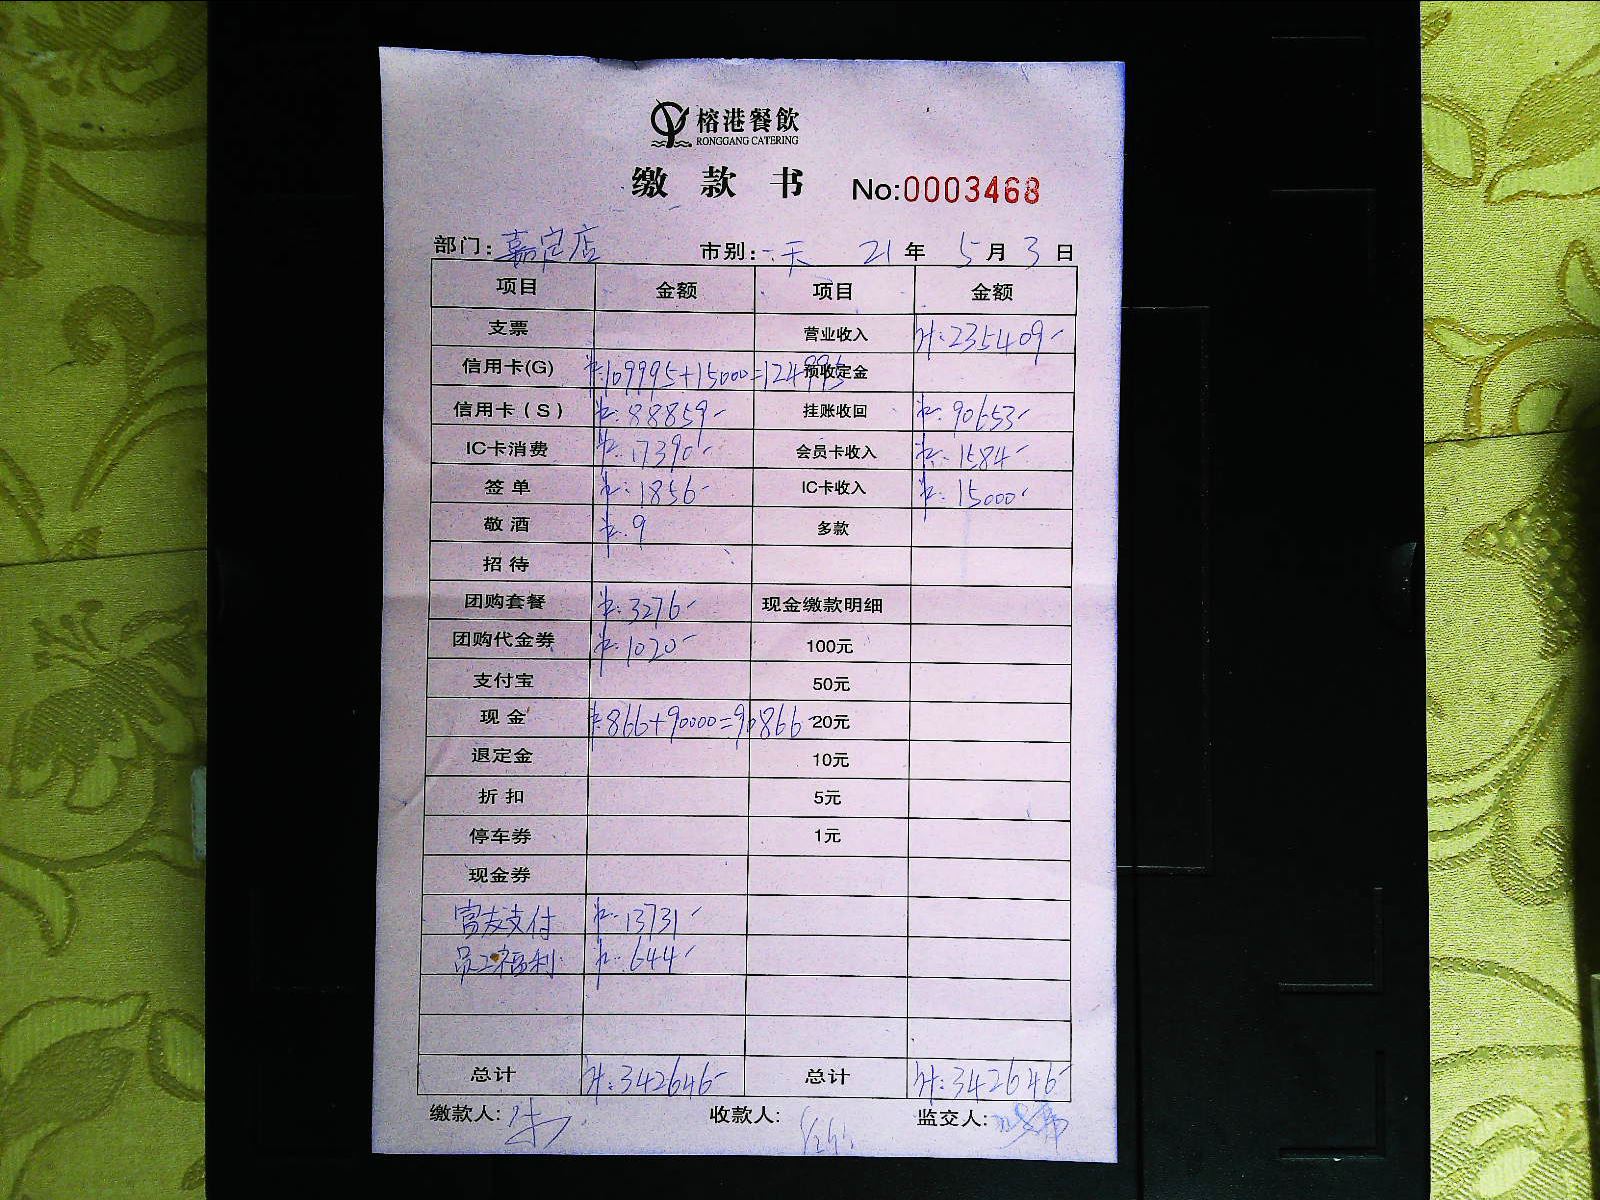 榕港餐飲
RONGGANG CATERING
缴款书 No:0003468
部门:嘉定店 市别:一天 21年5月3日
项目 金额 项目 金额
支票 营业收入 计:235409-
信用卡(G) 卡:109995+15000=124995 预收定金
信用卡(S) 卡:88859- 挂账收回 卡:90653-
IC卡消费 卡:17390- 会员卡收入 卡:1584-
签单 卡:1856- IC卡收入 卡:15000-
敬酒 卡:9 多款
招待
团购套餐 卡:3276- 现金缴款明细
团购代金券 卡:1020- 100元
支付宝 50元
现金 卡:866+90000=90866- 20元
退定金 10元
折扣 5元
停车券 1元
现金券
富友支付 卡:13731-
员工福利 卡:644-
总计 计:342646- 总计 计:342646-
缴款人: 收款人: 监交人: